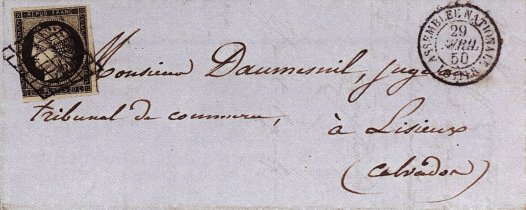 REPUB. FRANC.
ASSEMBLEE NATIONALE
29
AVRIL
50
Monsieur Daumesnil, juge
tribunal de commerce,
à Lisieux
(Calvados)